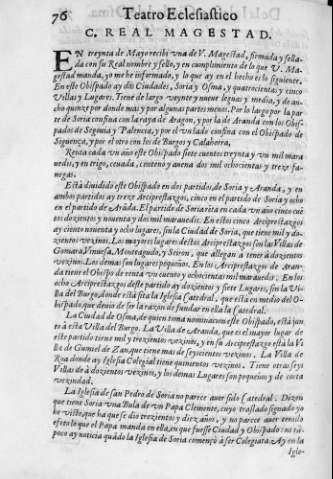 76 Teatro Eclesiastico
C. REAL MAGESTAD.
EN treynta de Mayo recibi vna de V. Magestad, firmada y sella-
da con su Real nombre y sello, y en cumplimento de lo que V. Ma-
gestad manda, yo me he informado, y lo que ay en el hecho es lo siguiente.
En este Obispado ay dos Ciudades, Soria y Osma, y quatrocientas y cinco
Villas y Lugares. Tiene de largo veynte y nueue leguas y media, y de an-
cho quinze por donde mas y por algunas partes menos. Por lo largo por la par-
te de Soria confina con la raya de Aragon, y por la de Aranda con los Obis-
pados de Segouia y Palencia, y por el vn lado confina con el Obispado de
Siguença, y por el otro con los de Burgos y Calahorra.
Renta cada vn año este Obispado siete cuentos treynta y vn mil mara
uedis, y en trigo, ceuada, centeno y auena dos mil ochocientas y treze fa-
negas.
Está diuidido este Obispado en dos partidos, de Soria y Aranda, y en
ambos partidos ay treze Arciprestazgos, cinco en el partido de Soria y ocho
en el partido de Aranda. El partido de Soria renta en cada vn año cinco cuē
tos dozientos y nouenta y dos mil marauedis. En estos cinco Arciprestazgos
ay ciento nouenta y ocho lugares, sin la Ciudad de Soria, que tiene mil y do-
zientos vezinos. Los mayores lugares destos Arciprestazgos son las Villas de
Gomara, Vinuesa, Monteagudo, y Seron, que allegan a tener à dozientos
vezinos. Los demas son lugares pequeños. En los Arciprestazgos de Aran-
da tiene el Obispo de renta vn cuento y ochocientas mil marauedis. En los
ocho Arciprestazgos deste partido ay dozientos y siete Lugares, sin la Vi-
lla del Burgo, donde està sita la Iglesia Catedral, que está en medio del O-
bispado, que deuio de ser la razon de fundar en ella la Catedral.
La Ciudad de Osma, de quien toma nominacion este Obispado, está jun
to à esta Villa del Burgo. La Villa de Aranda, que es el mayor lugar de
este partido tiene mil y trezientos vezinos, y en su Arciprestazgo està la Vi
lla de Gumiel de Zan, que tiene mas de seyscientos vezinos. La Villa de
Roa donde ay Iglesia Colegial tiene quinientos vezinos. Tiene otras seys
Villas de à dozientos vezinos, y los demas Lugares son pequeños y de corta
vezindad.
La Iglesia de san Pedro de Soria no parece auer sido Catedral. Dizen
que tiene Soria una Bula de vn Papa Clemente, cuyo traslado signado yo
he visto, que ha que se dio trezientos y diez años, y no parece auer tenido
efeto lo que el Papa manda en ella, en que fuesse Ciudad y Obispado: ni tā-
poco ay noticia quādo la Iglesia de Soria començò à ser Colegiata. Ay en la
Igle-